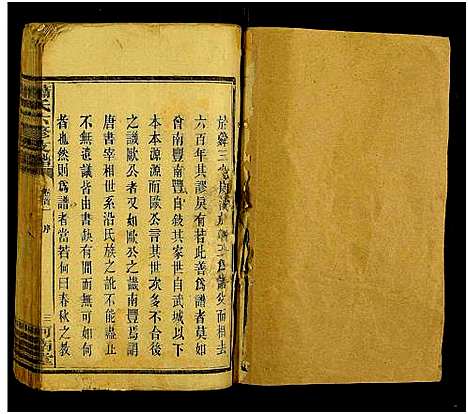 六百年其謬戾有若此善為譜者莫如
曾南豐南豐自敘其家世自武城以下
本本源源而歐公言其世次多不合後
之譏歐公者又如歐公之譏南豐焉謂
唐書宰相世系沿氏族之訛不能盡止
不無遺議皆由書缺有間而無可如何
者也然則為譜者當若何曰春秋之教
氏六修支譜
序
三